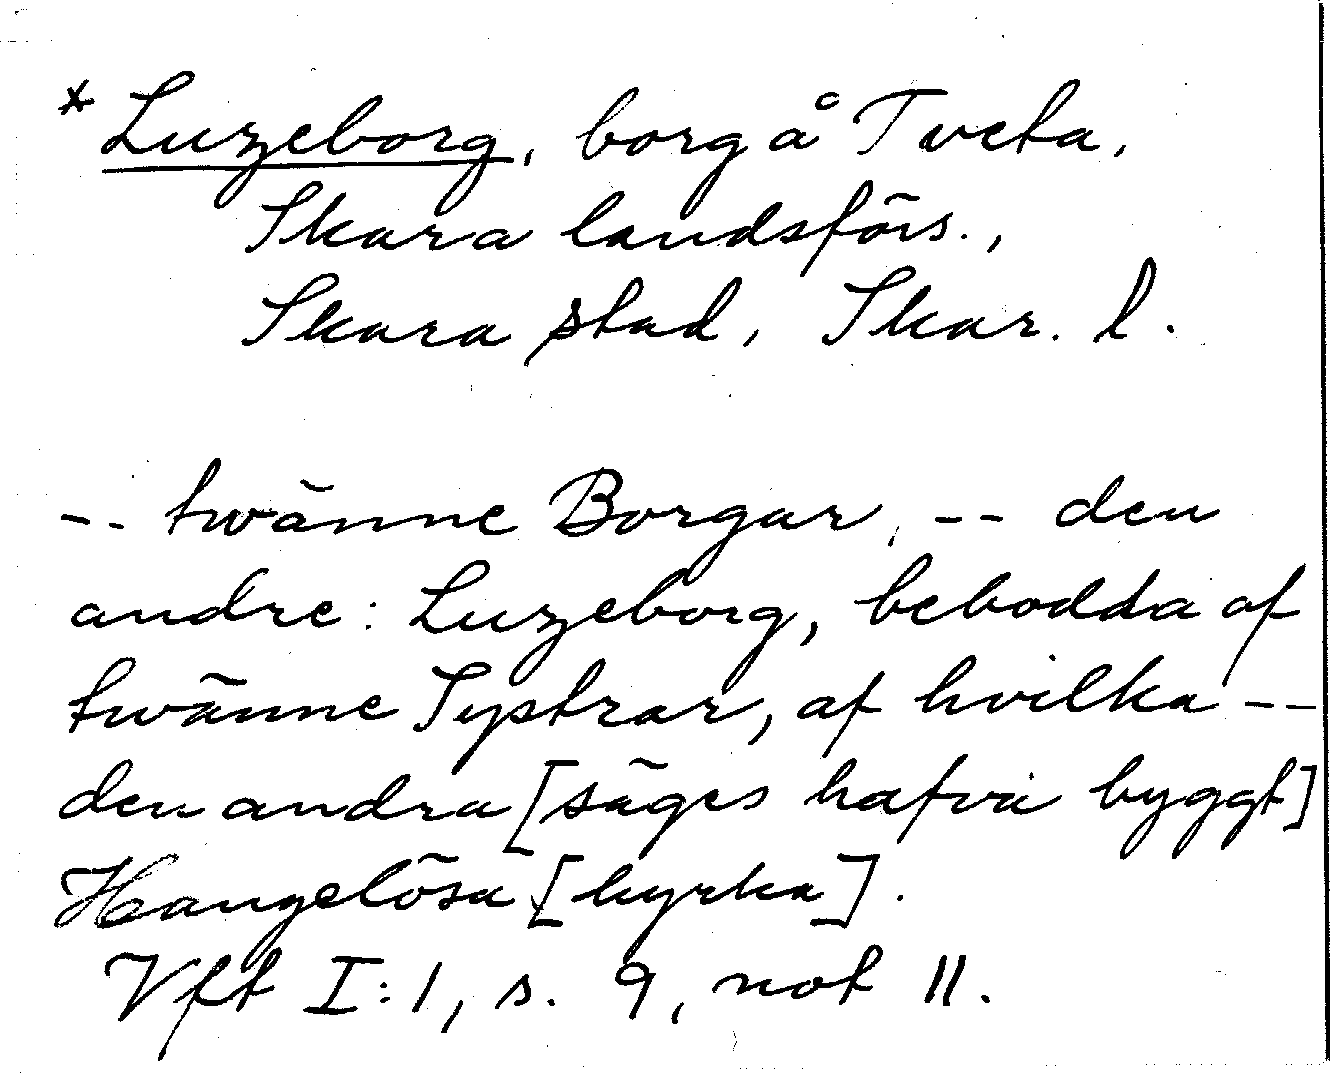 * Luzeborg, borg å Tveta,
Skara landsförs.,
Skara stad, Skar. l.
-- twänne Borgar, -- den
andre: Luzeborg, bebodda af
twänne Systrar, af hvilka --
den andra [säges hafva byggt]
Hangelösa [kyrka].
Vft I:1, s. 9, not 11.